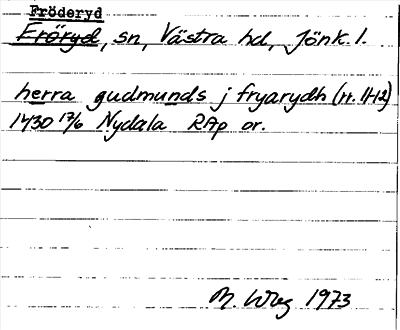 Fröderyd
Fröryd, sn, Västra hd, Jönk. l.
herra gudmunds j fryarydh (rr. 11-12)
1430 17/6 Nydala RAp or.
M. Wbg 1973